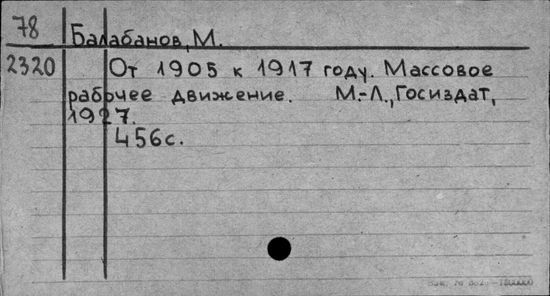 78
Балабанов, М.
2320
От 1905 к 1917 году. Массовое
рабочее движение. М.-Л., Госиздат,
1927.
456с.